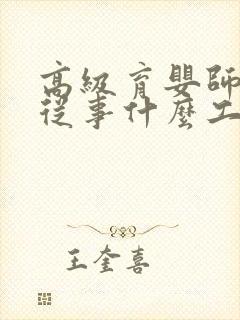 高級育嬰師
從事什麼工
王奎喜